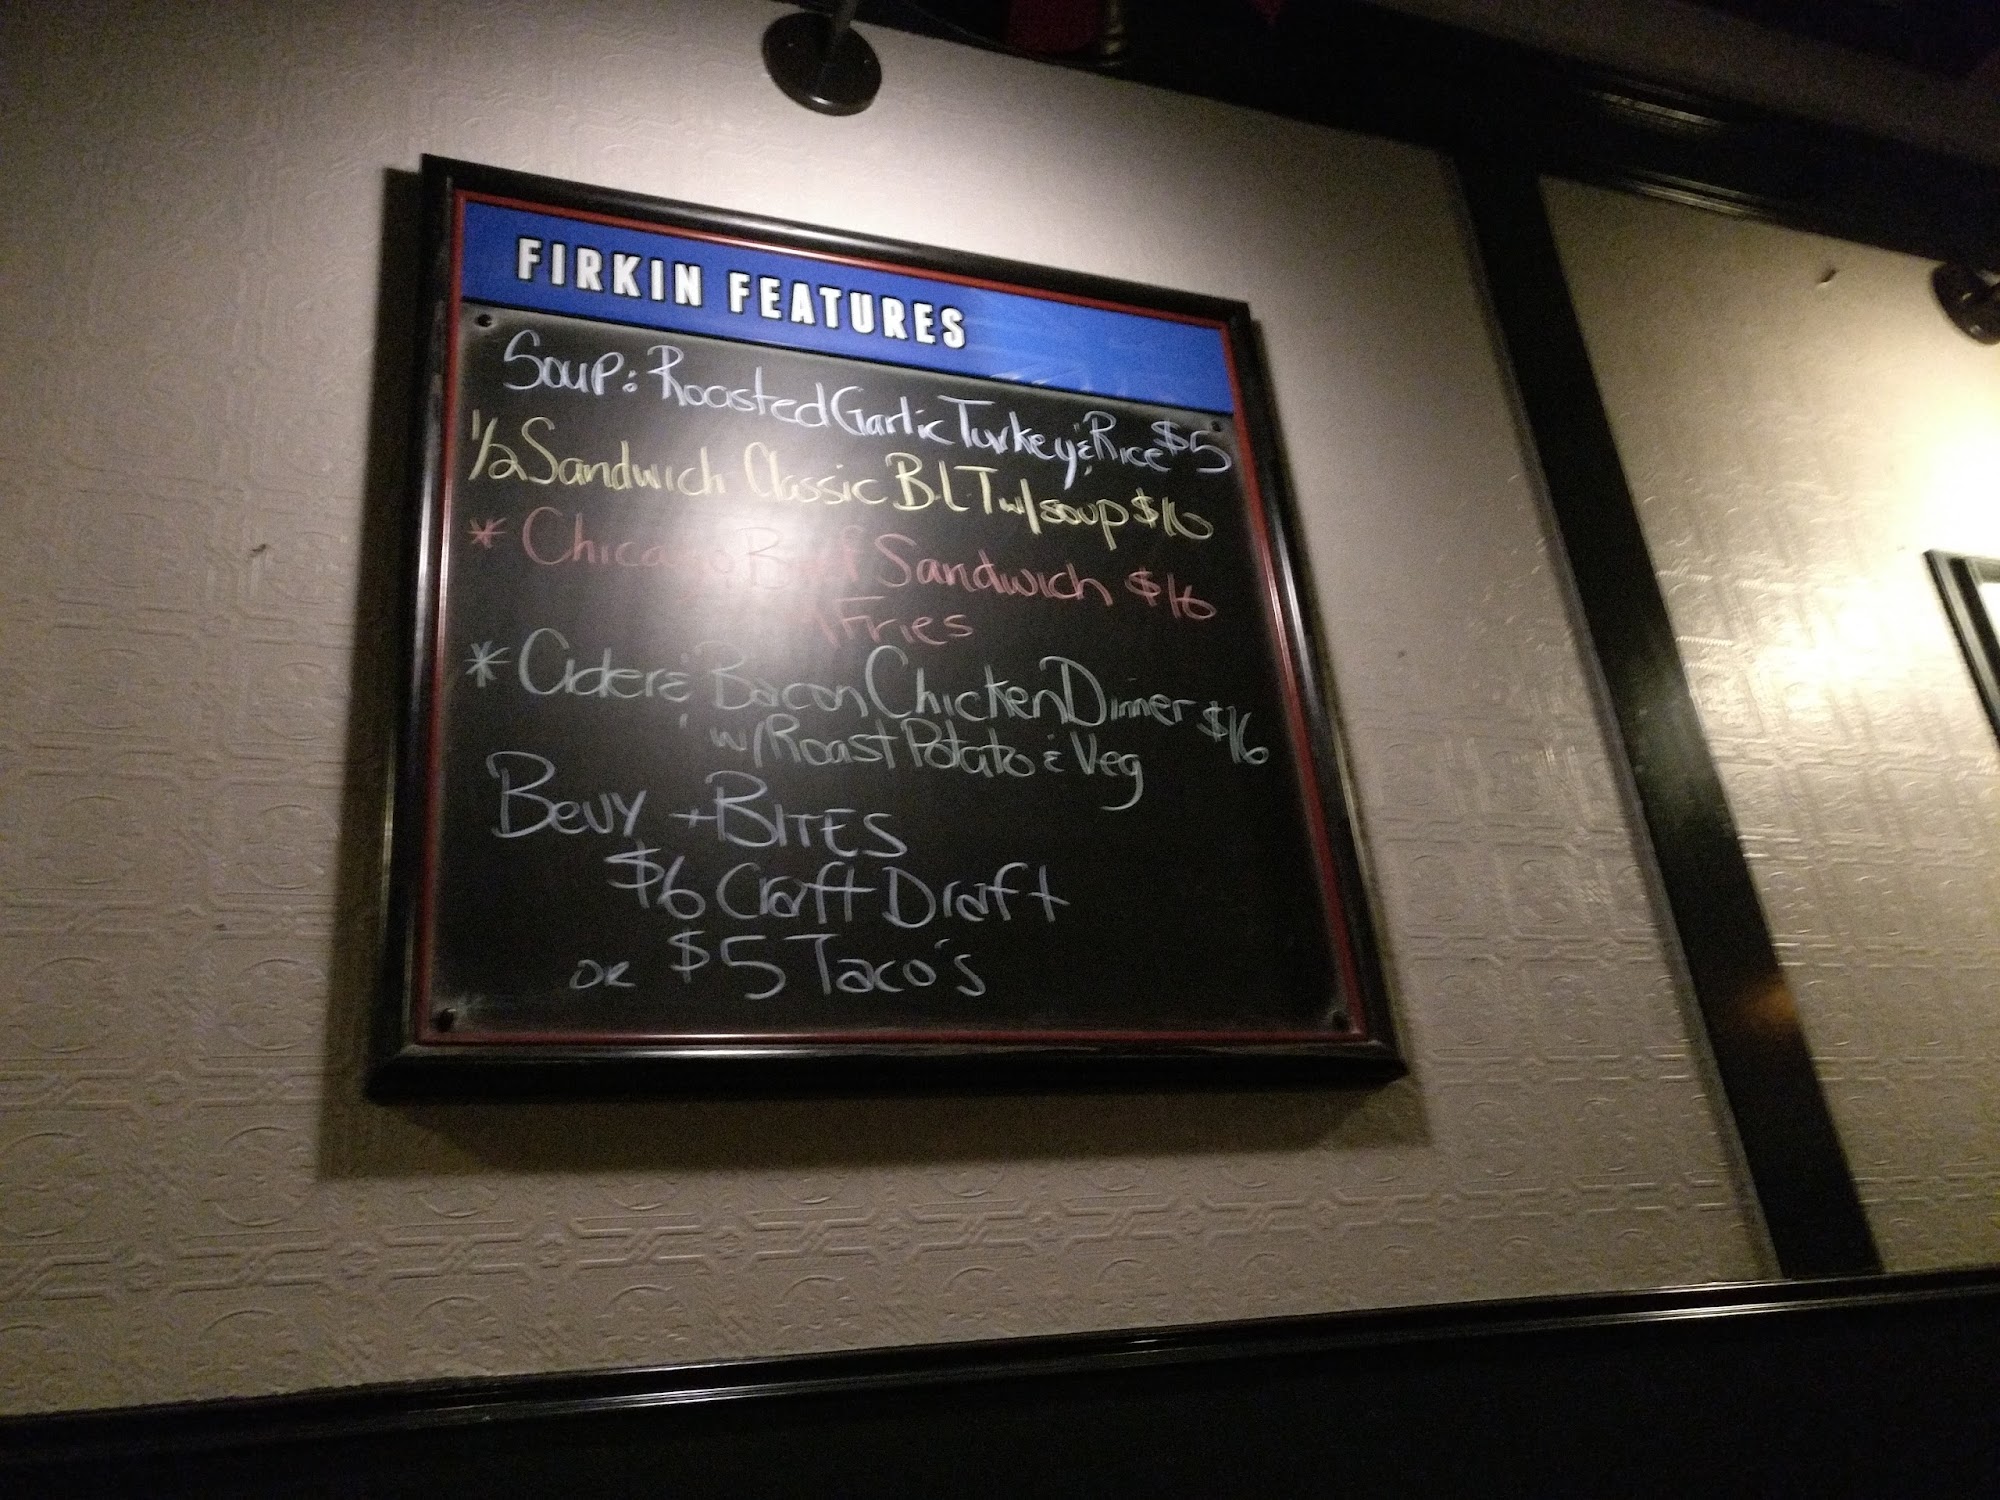 FIRKIN FEATURES
Soup: Roasted Garlic Turkey & Rice $5
1/2 Sandwich Classic BLT w/ soup $16
* Chicago Beef Sandwich $16
Fries
* Cider & Bacon Chicken Dinner $16
w/ Roast Potato & Veg
BEVY + BITES
$6 Craft Draft
OR $5 Taco's